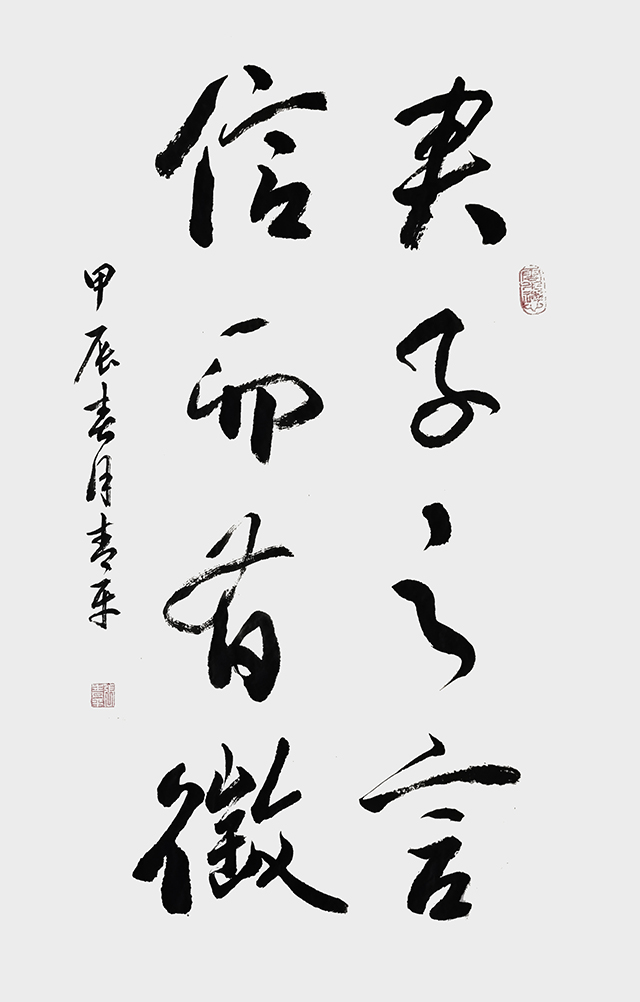 君子之言
信而有徵
甲辰春月青平